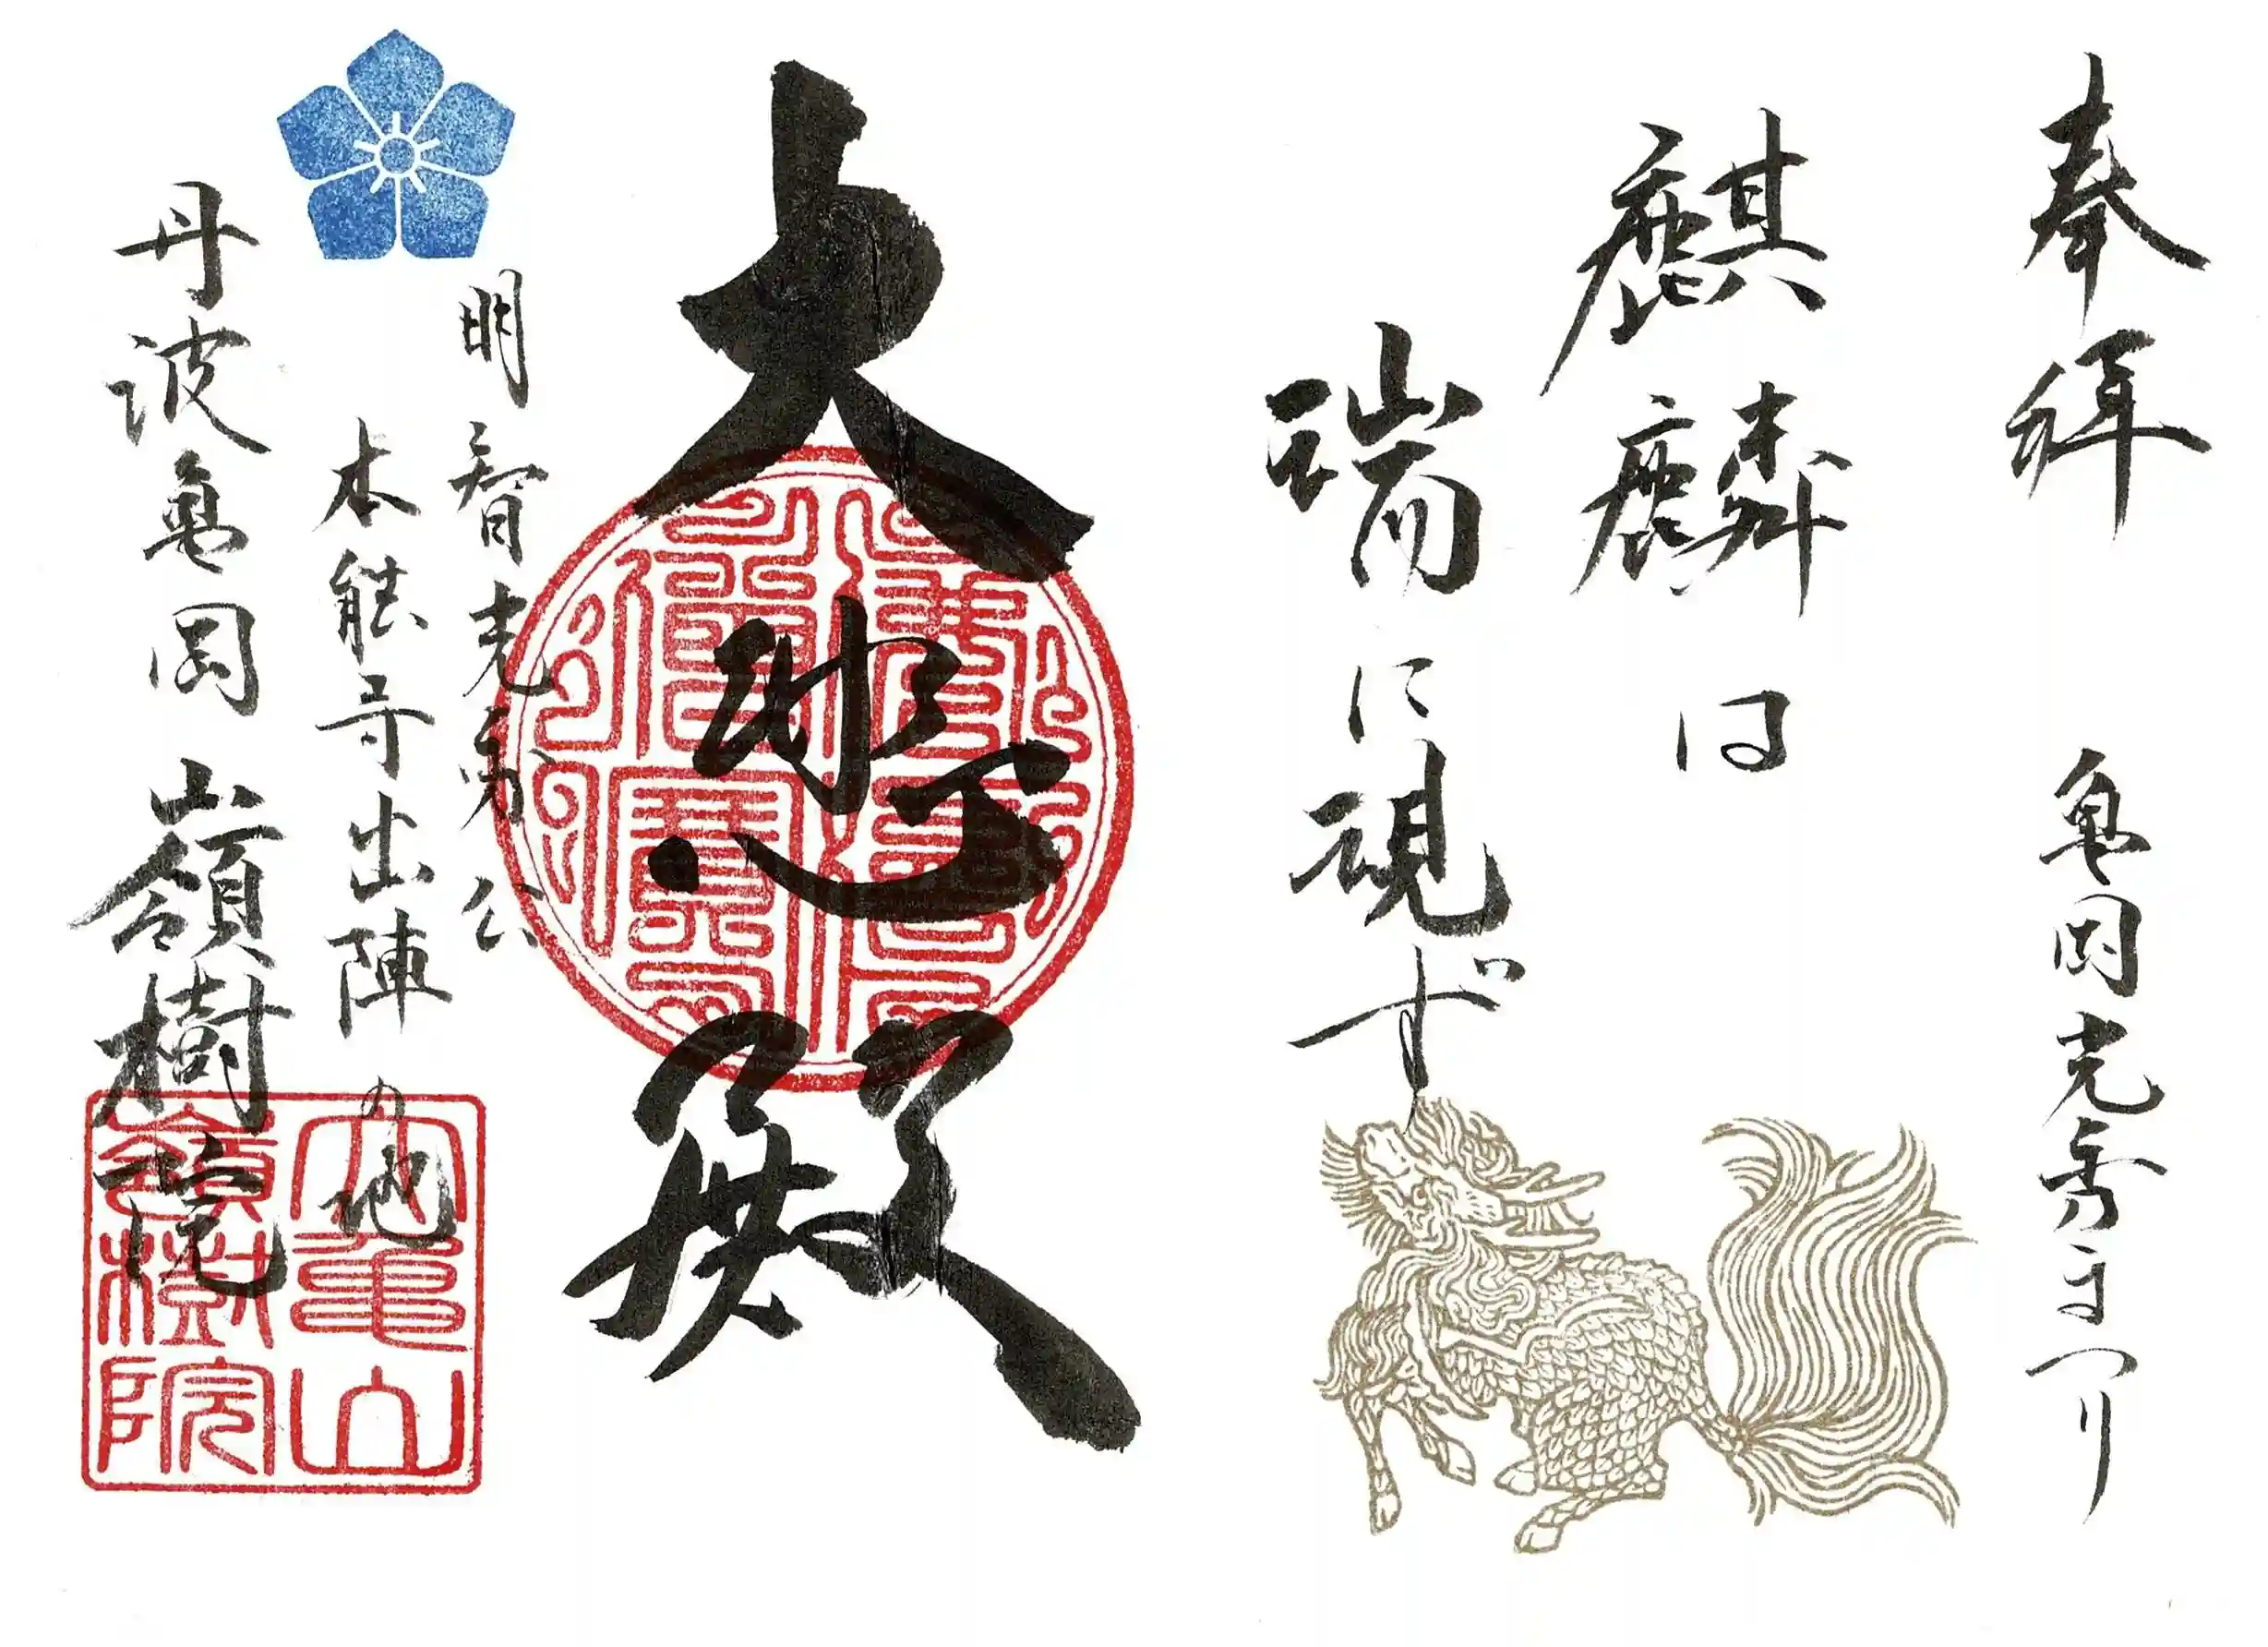 奉拝 亀岡光秀まつり
麒麟は
瑞に現ず
大悲殿
明智光秀公
本能寺出陣の地
丹波亀岡 嶺樹院
大亀山
嶺樹院